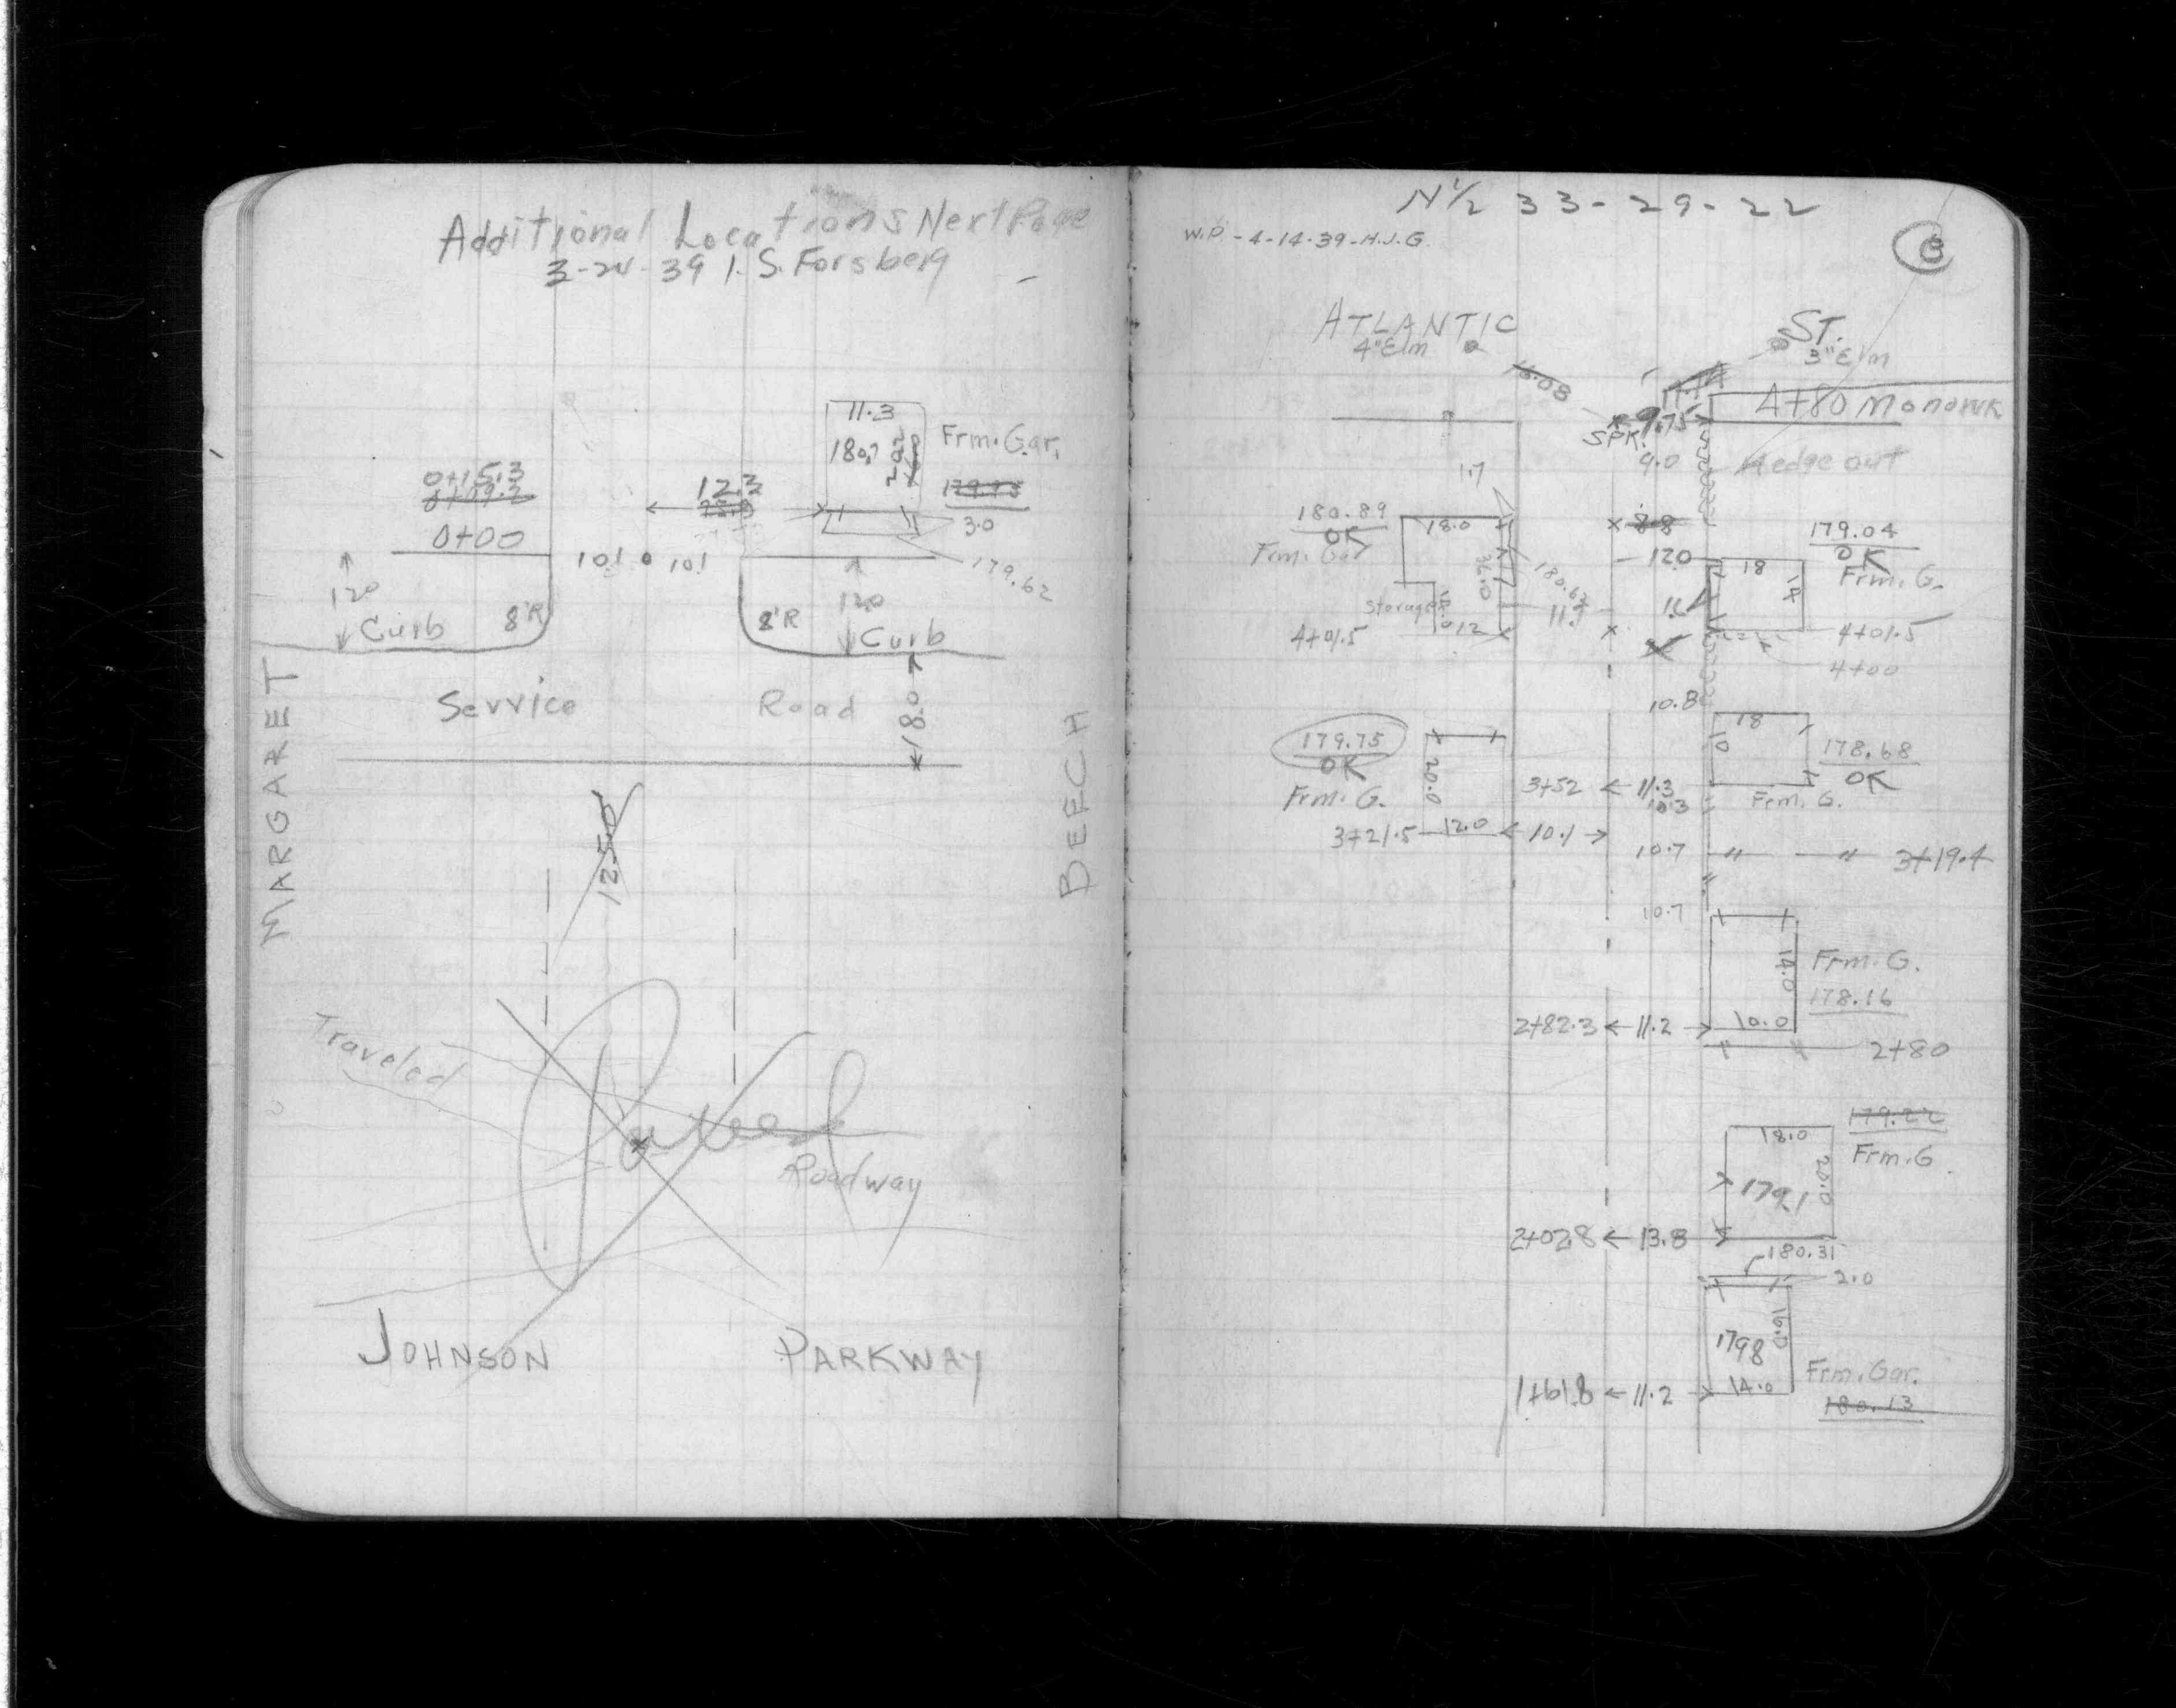 Additional Locations Next Page
3-24-39 I. S. Forsberg
11.3
180.7
20.2
Frm. Gar.
179.93
0+15.3
0+09.2
12.3
3.0
0+00
10.1 10.1
179.62
120
120
Curb
8'R
8'R
Curb
MARGARET
Service Road
18.0
BEECH
125.0
Traveled
Paved
Roadway
JOHNSON PARKWAY
N 1/2 33-29-22
W.P. - 4-14-39-H.J.G.
3
ATLANTIC ST.
4" Elm
3" Elm
16.08
11.1
9.75
4+80 Mohawk
SPK.
9.0
Hedge out
1.7
180.89
OK
Frm. Gar
18.0
8.8
179.04
OK
Frm. G.
12.0
18
14
36.0
180.62
Storage
11.7
4+01.5
12
4+01.5
4+00
10.8
18
10
178.68
OK
179.75
OK
Frm. G.
20.0
3+52
11.3
10.3
Frm. G.
3+21.5
12.0
10.1
10.7
" "
3+19.4
10.7
14.0
Frm. G.
178.16
2+82.3
11.2
10.0
2+80
179.22
18.0
Frm. G.
20.0
179.1
2+02.8
13.8
180.31
2.0
16.0
179.8
Frm. Gar.
1+61.8
11.2
14.0
180.13